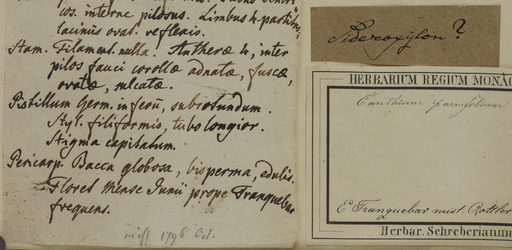 cos. interne pilosus. Limbus 4 partitus,
laciniis ovat. reflexis.
Stam. Filament. nulla. Antheræ 4, inter
pilos fauci corollæ adnatæ, fuscæ,
ovatæ, sulcatæ.
Pistillum Germ. inferū, subrotundum.
Styl. filiformis, tubo longior.
Stigma capitatum.
Pericarp. Bacca globosa, bisperma, edulis.
Flores Mense Junii prope Tranquebar
frequens.
1796 Oct.
Sideroxylon?
HERBARIUM REGIUM MONAC
Canthium parvifolium
E Tranquebar misit Rottler
Herbar. Schreberianum